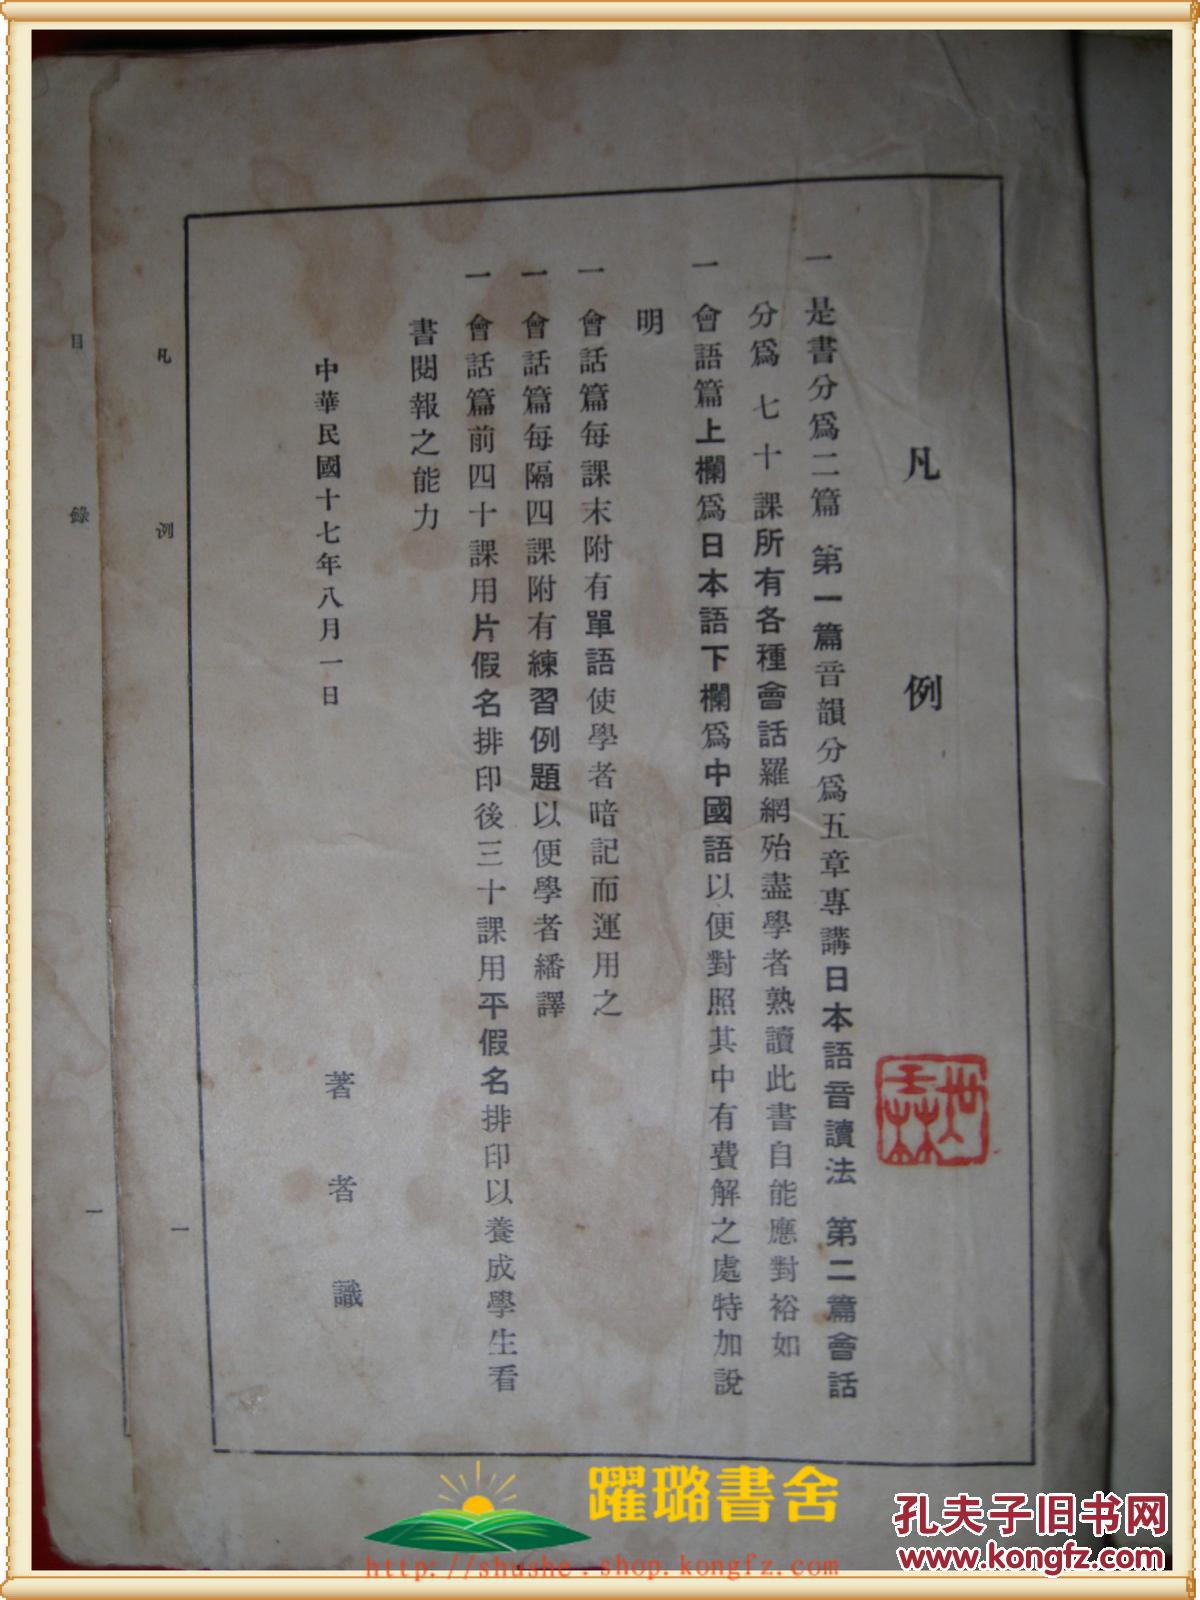 凡例
一 是書分爲二篇 第一篇音韻分爲五章專講日本語音讀法 第二篇會話
分爲七十課所有各種會話羅網殆盡學者熟讀此書自能應對裕如
一 會語篇上欄爲日本語下欄爲中國語以便對照其中有費解之處特加說
明
一 會話篇每課末附有單語使學者暗記而運用之
一 會話篇每隔四課附有練習例題以便學者繙譯
一 會話篇前四十課用片假名排印後三十課用平假名排印以養成學生看
書閱報之能力
中華民國十七年八月一日
著者識
凡例 一
目錄 一
躍璐書舍
http://shushe.shop.kongfz.com
孔夫子旧书网
www.kongfz.com